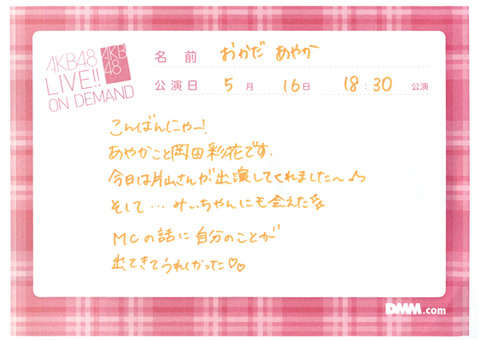 AKB48
LIVE!!
ON DEMAND
AKB
48
名前 おかだ あやか
公演日 5月 16日 18:30 公演
こんばんにゃー!
あやかこと岡田彩花です.
今日は片山さんが出演してくれました〜♪
そして…みぃちゃんにも会えた
MCの話に自分のことが
出てきてうれしかった♡♡
DMM.com